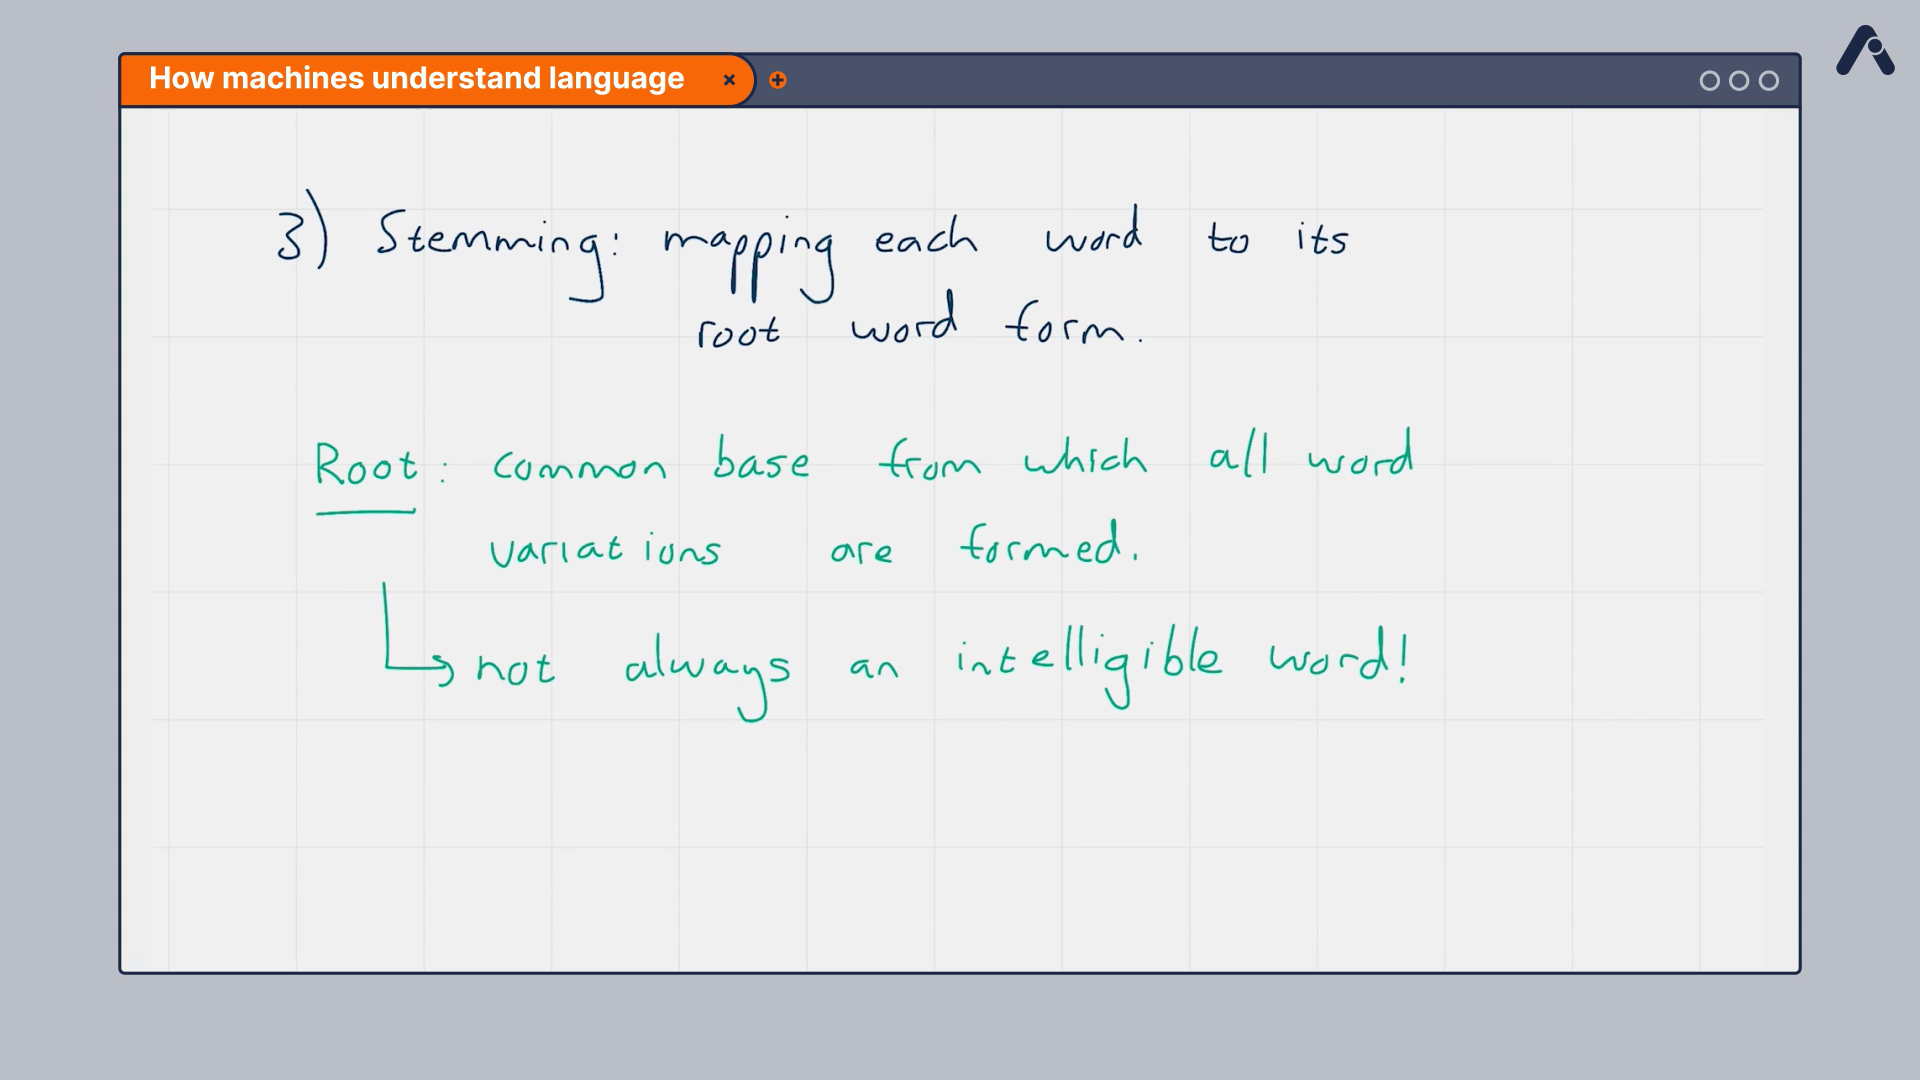 How machines understand language
3) Stemming: mapping each word to its
root word form.
Root: common base from which all word
variations are formed.
not always an intelligible word!